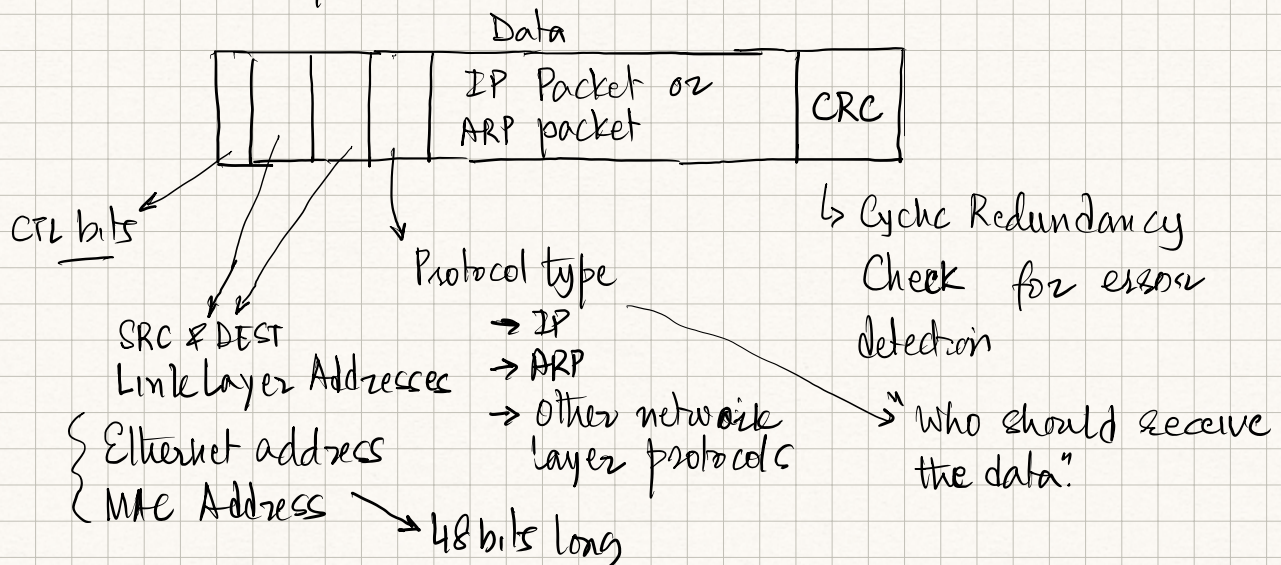 Data
IP Packet or
ARP packet
CRC
CTL bits
SRC & DEST
Link Layer Addresses
Ethernet address
MAC Address
48 bits long
Protocol type
→ IP
→ ARP
→ Other network
layer protocols
↳ Cyclic Redundancy
Check for error
detection
"Who should receive
the data".